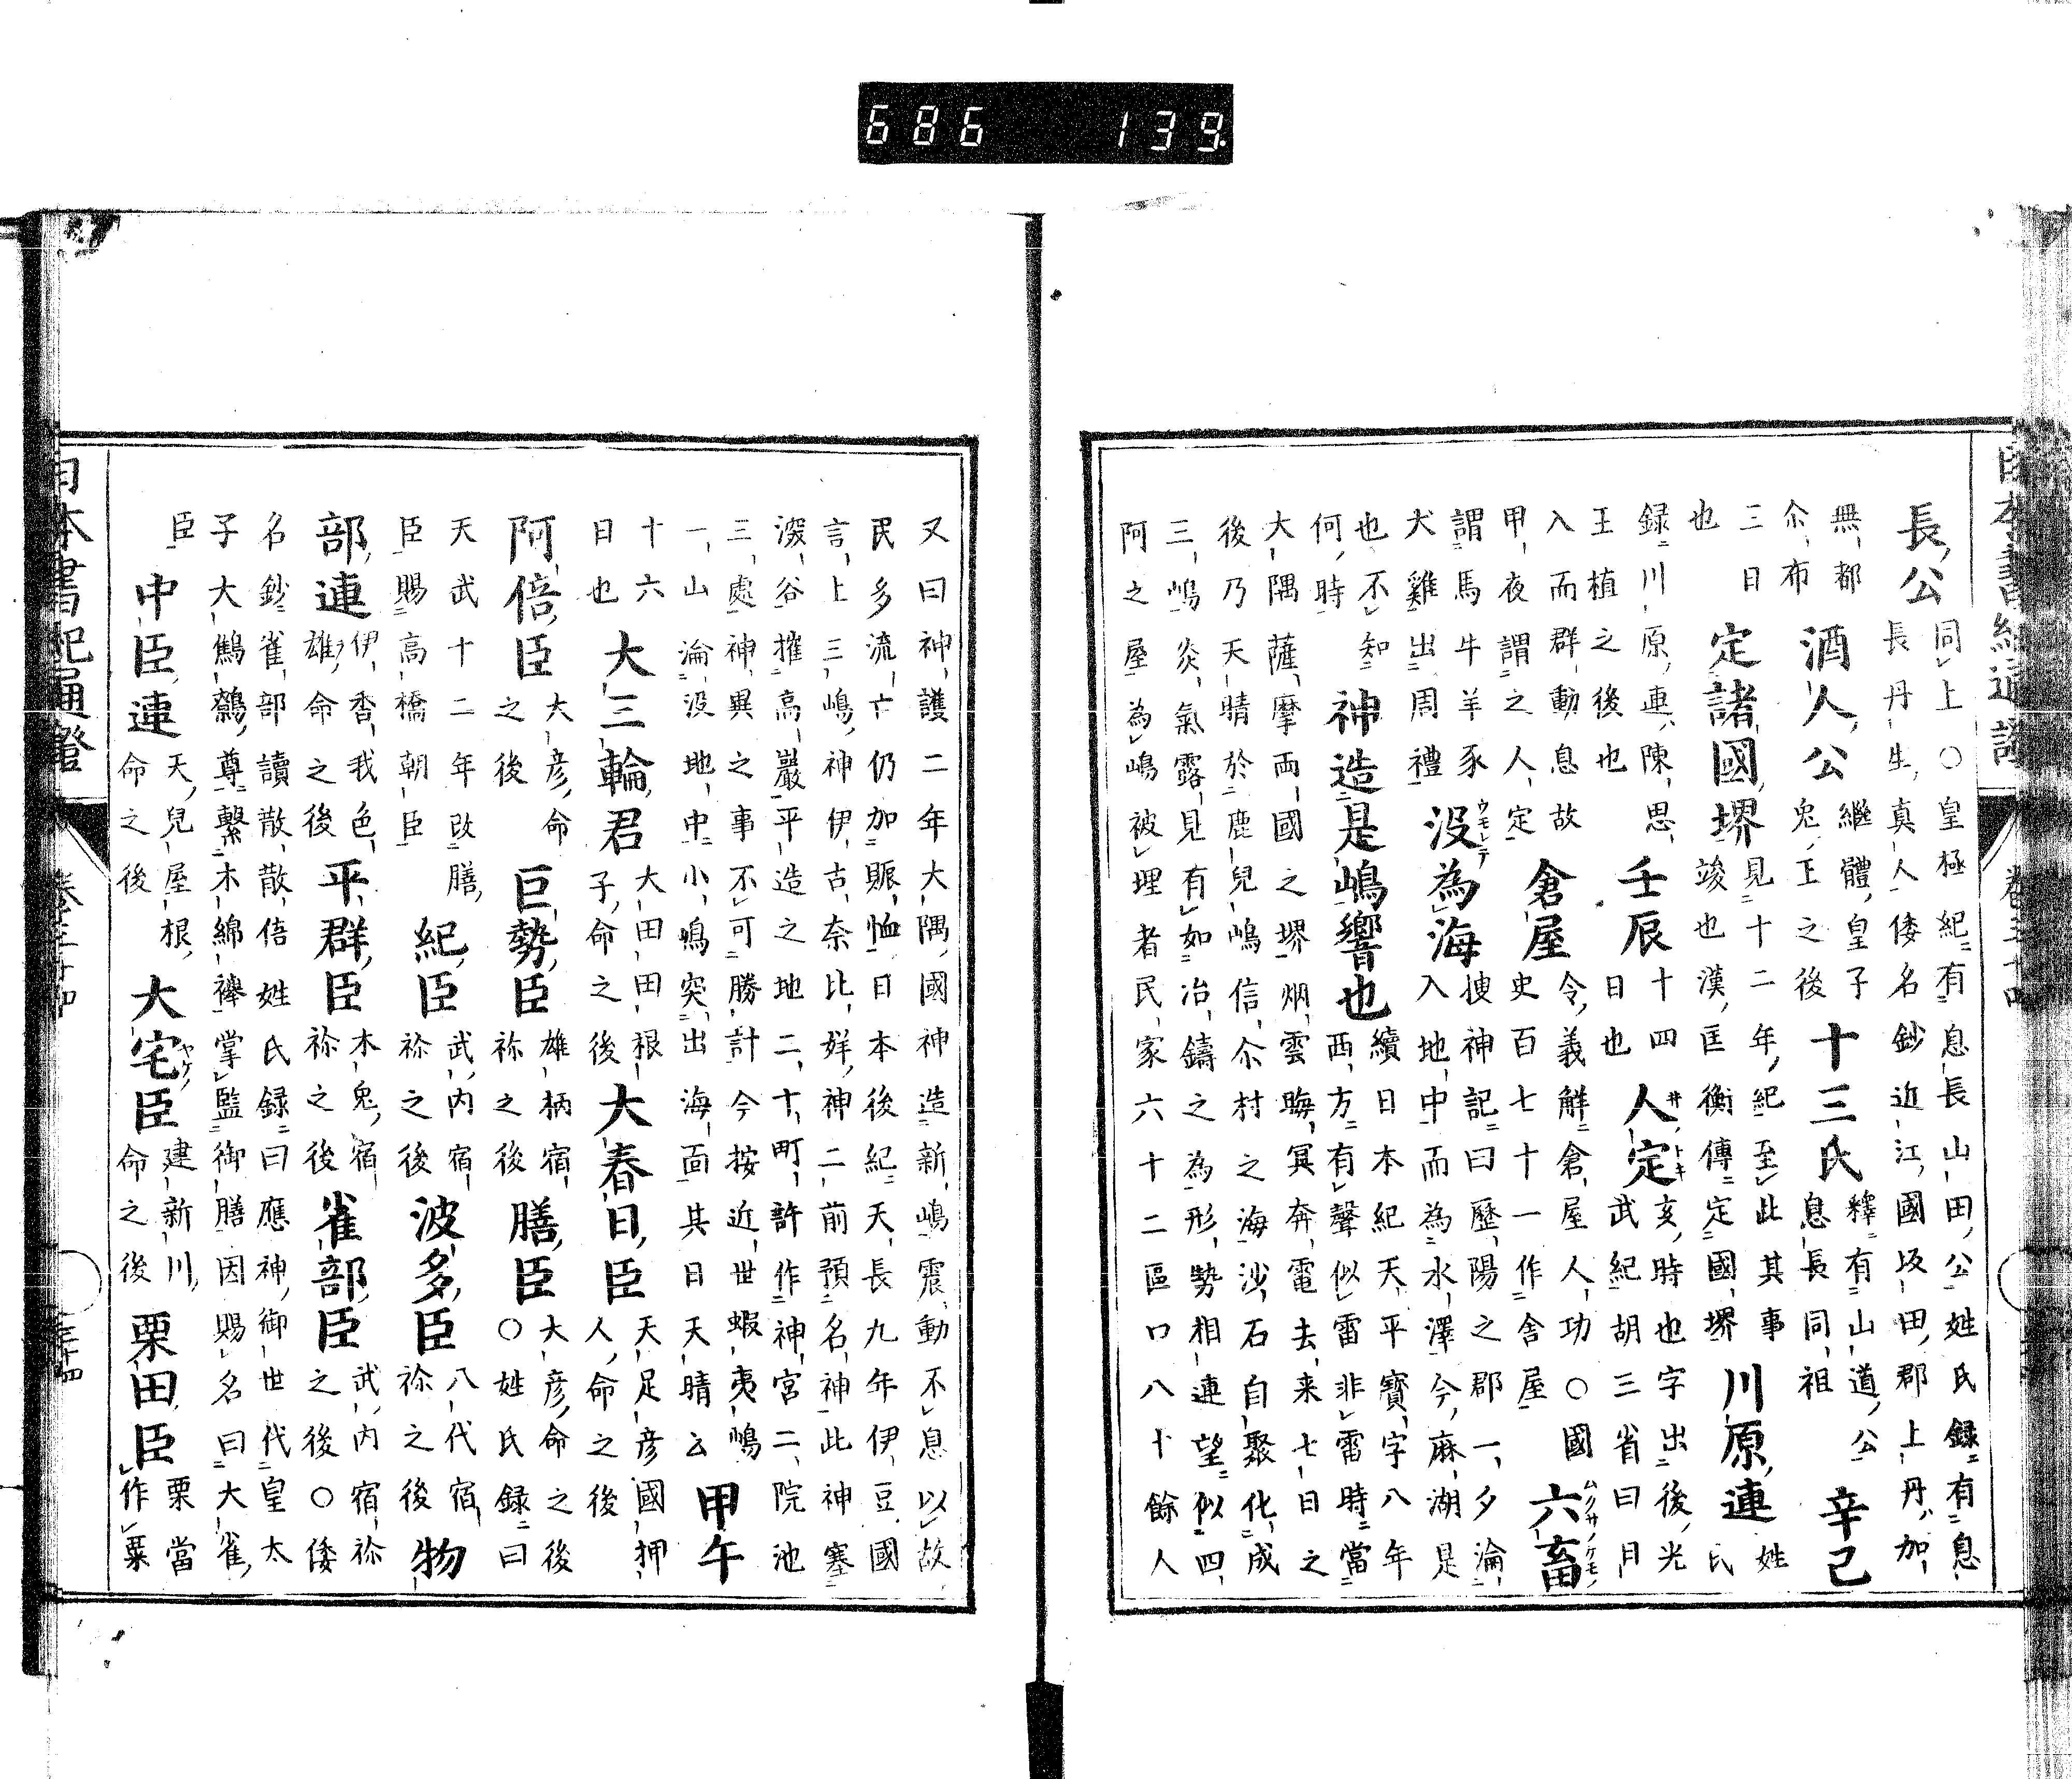 686 139
日本書紀通證 卷三十四
長公 同上○皇極紀有息長山田公姓氏録有息
長丹生真人倭名鈔近江國坂田郡上丹加
無都
尒布 酒人公 繼體皇子
兔王之後 十三氏 釋有山道公
息長同祖 辛己
三日
也 定諸國堺 見十二年紀至此其事
竣也漢匡衡傳定國堺 川原連 姓
氏
録川原連陳思
王植之後也 壬辰 十四
日也 人定 井トキ 亥時也字出後光
武紀胡三省曰日
入而群動息故
甲夜謂之人定 倉屋 令義解倉屋人功○國
史百七十一作舎屋 六畜 ムクサノケモノ
謂馬牛羊豕
犬雞出周禮 没為海 ウモレテ 捜神記曰歴陽之郡一夕淪
入地中而為水澤今麻湖是
也不知
何時 神造是嶋響也 續日本紀天平寶字八年
西方有聲似雷非雷時當
大隅薩摩両國之堺烟雲晦冥奔電去来七日之
後乃天晴於鹿兒嶋信尒村之海沙石自聚化成
三嶋炎氣露見有如冶鑄之為形勢相連望似四
阿之屋為嶋被埋者民家六十二區口八十餘人
又曰神護二年大隅國神造新嶋震動不息以故
民多流亡仍加賑恤日本後紀天長九年伊豆國
言上三嶋神伊古奈比咩神二前預名神此神塞
深谷摧高巖平造之地二十町許作神宮二院池
三處神異之事不可勝計今按近世蝦夷嶋
一山淪没地中小嶋突出海面其日天晴云 甲午
十六
日也 大三輪君 大田田根
子命之後 大春日臣 天足彦國押
人命之後
阿倍臣 大彦命
之後 巨勢臣 雄柄宿
祢之後 膳臣 大彦命之後
○姓氏録曰
天武十二年改膳
臣賜高橋朝臣 紀臣 武内宿
祢之後 波多臣 八代宿
祢之後 物
部連 伊香我色
雄命之後 平群臣 木兔宿
祢之後 雀部臣 武内宿祢
之後○倭
名鈔雀部讀散散倍姓氏録曰應神御世代皇太
子大鷦鷯尊繫木綿襷掌監御膳因賜名曰大雀
臣 中臣連 天兒屋根
命之後 大宅臣 ヤケノ 建新川
命之後 栗田臣 栗當
作粟
日本書紀通證 卷三十四 三十四